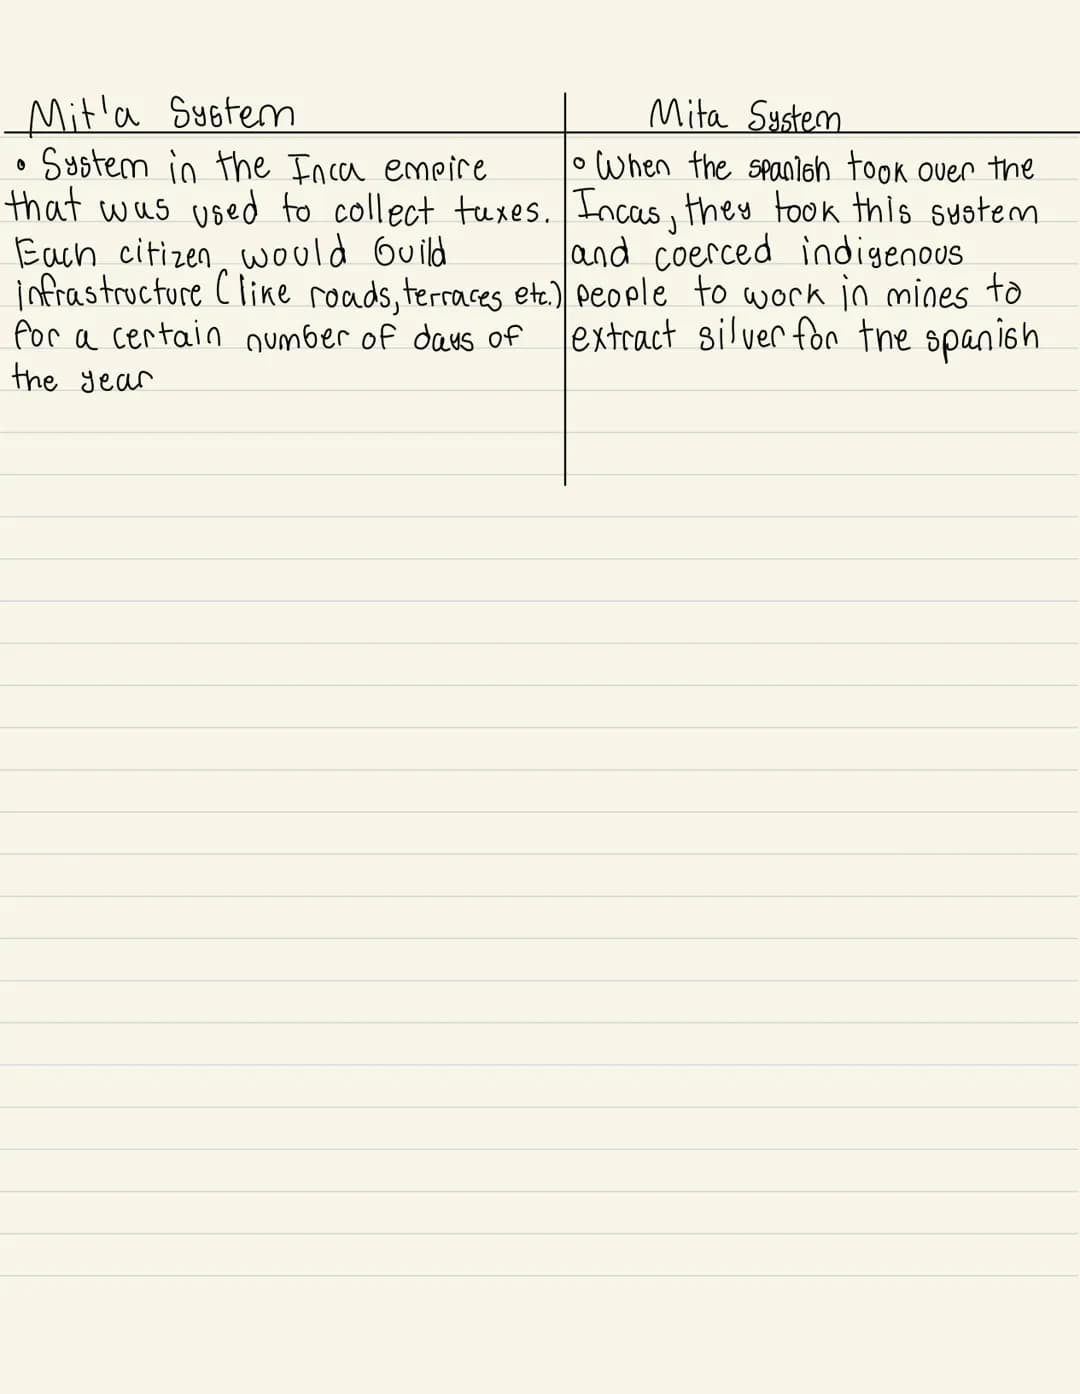 Mit'a System
• System in the Inca empire
that was used to collect taxes.
Each citizen would build
infrastructure (like roads, terraces etc.)
for a certain number of days of
the year
Mita System
• When the spanish took over the
Incas, they took this system
and coerced indigenous
people to work in mines to
extract silver for the spanish